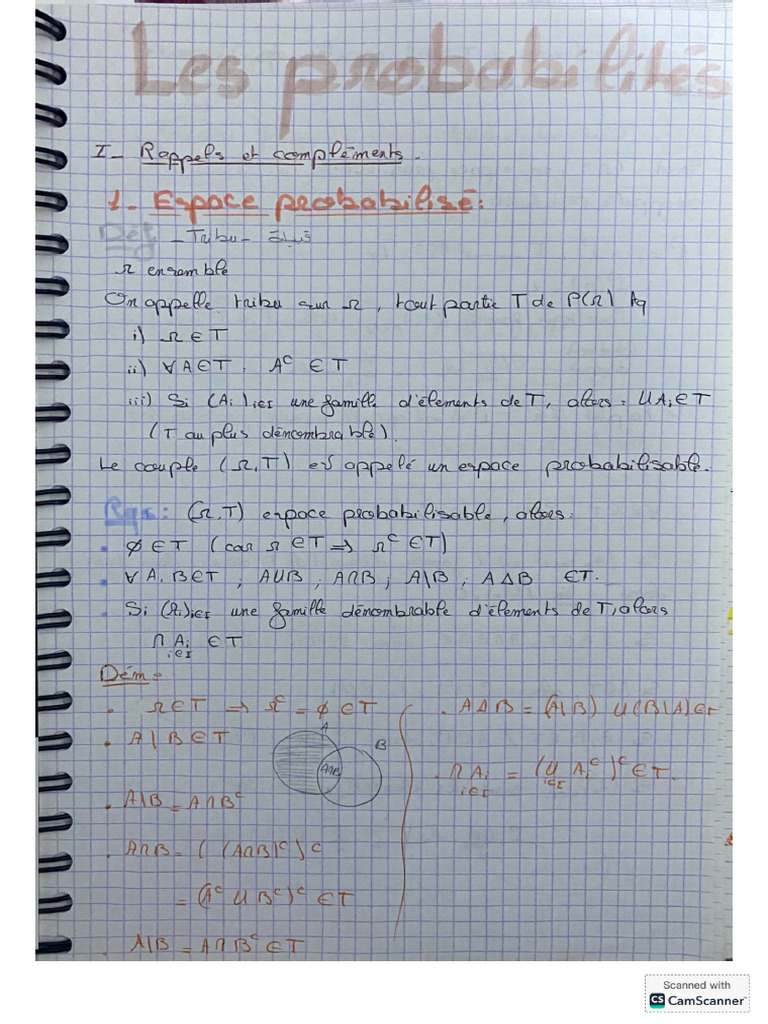 Les probabilités
I- Rappels et complēments.
1- Espace probabilisé:
Déf -Tribu- قبيلة
Ω ensemble
On appelle tribu sur Ω, tout partie T de P(Ω) tq
i) Ω ∈ T
ii) ∀A∈T, A^c ∈ T
iii) Si (Ai)i∈I une famille d'élements de T, alors: ∪Ai∈T
(I au plus dénombrable).
Le couple (Ω,T) est appelé un espace probabilisable.
Rqs: (Ω,T) espace probabilisable, alors:
• ∅ ∈ T (car Ω ∈ T ⇒ Ω^c ∈ T)
• ∀ A, B ∈ T, A∪B, A∩B, A\B, A Δ B ∈ T.
• Si (Ai)i∈I une famille dénombrable d'élements de T, alors
∩ Ai i∈I ∈ T
Dém:
• Ω ∈ T ⇒ Ω^c = ∅ ∈ T
• A\B ∈ T
A
B
A∩B
• A\B = A∩B^c
• A∩B = ( (A∩B)^c )^c
= (A^c ∪ B^c)^c ∈ T
A\B = A∩B^c ∈ T
• A Δ B = (A\B) ∪ (B\A) ∈ T
• ∩ Ai i∈I = (∪ i∈I Ai^c)^c ∈ T.
Scanned with
CS CamScanner